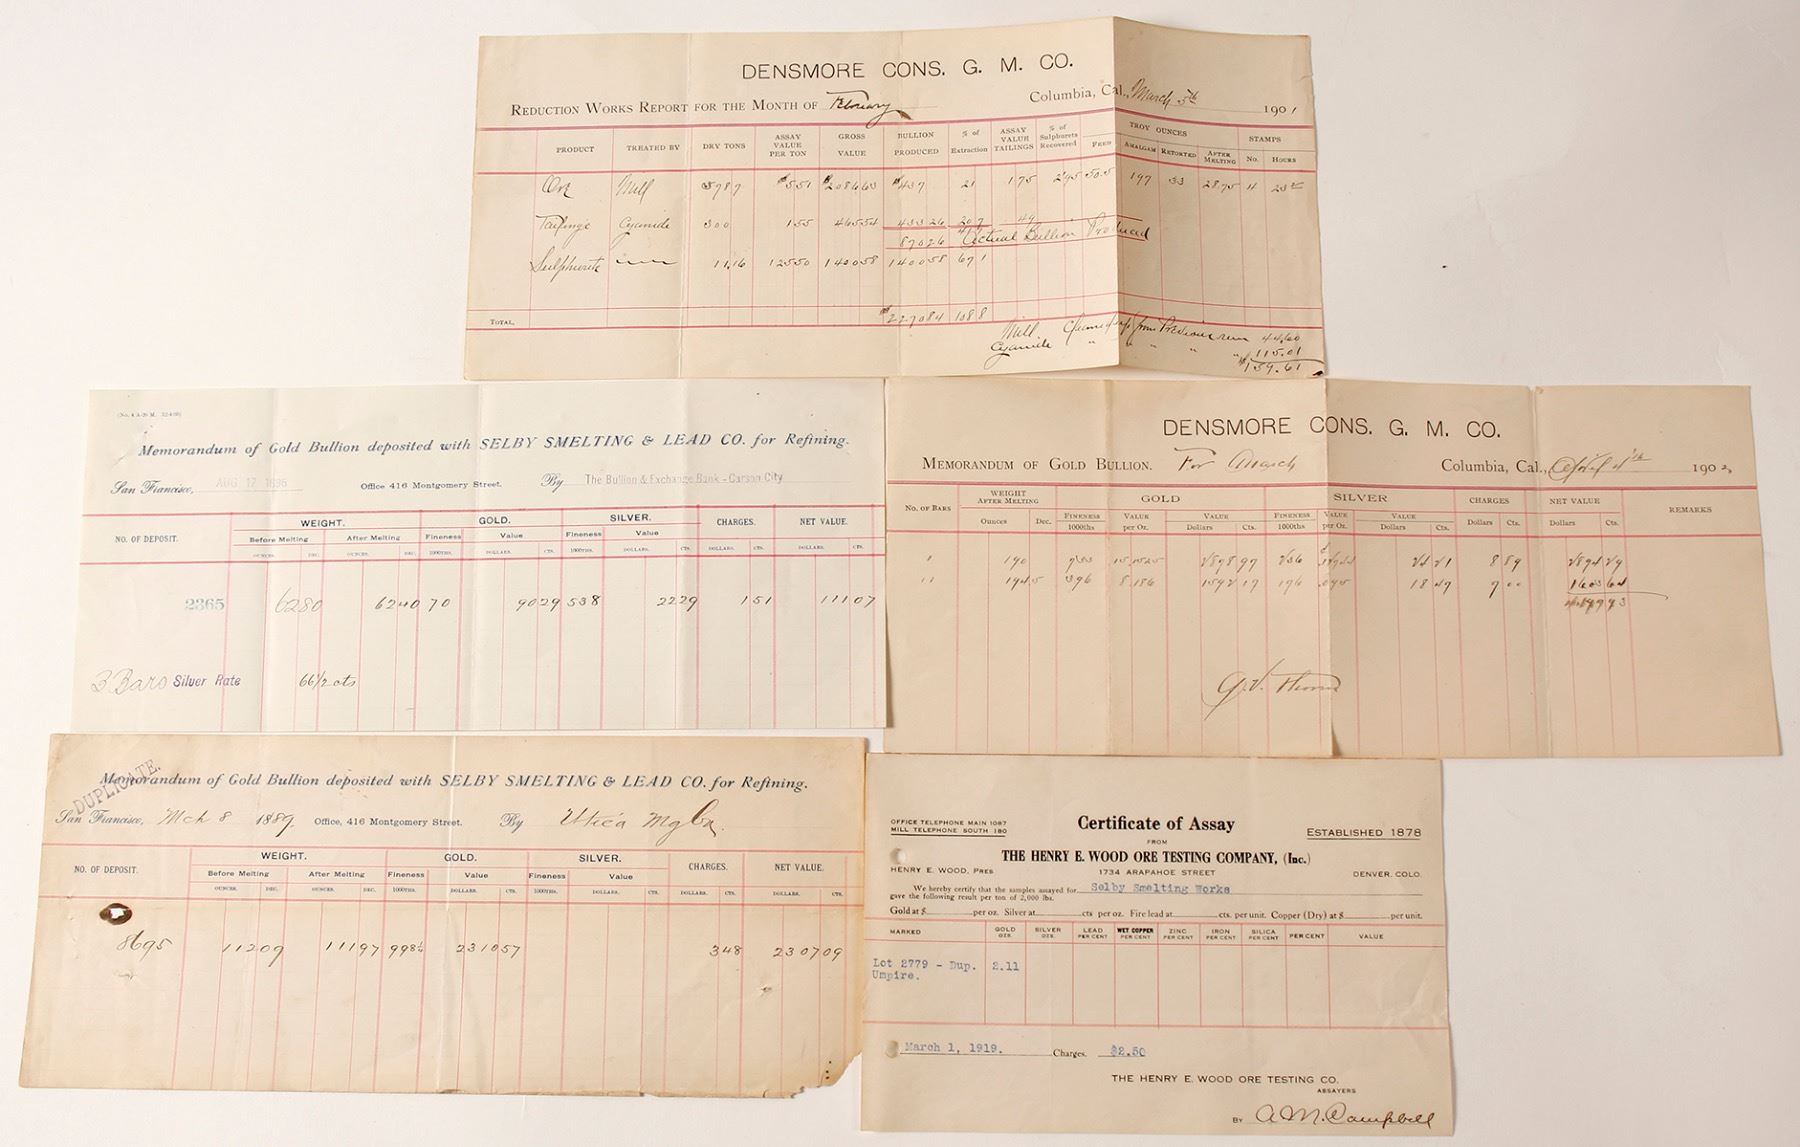 DENSMORE CONS. G. M. CO.
REDUCTION WORKS REPORT FOR THE MONTH OF February Columbia, Cal., March 5th 1901
PRODUCT TREATED BY DRY TONS ASSAY VALUE PER TON GROSS VALUE BULLION PRODUCED % of Extraction ASSAY VALUE TAILINGS % of Sulphurets Recovered TROY OUNCES FEED AMALGAM RETORTED AFTER MELTING STAMPS No. HOURS
Ore Mill $5.51 $437 21 1.75 50.5 197 33 28.75
Tailings Cyanide 300 1.55 465.54 433.26 20.7 .49
870.26 Actual Bullion Produced
Sulphurets 11.16 125.50 1400.58 1400.58 67.1
TOTAL. $2270.84 108.8
Mill from Previous run 44.60
Cyanide " " " " 115.01
$159.61
(No. 4 A-25 M.
Memorandum of Gold Bullion deposited with SELBY SMELTING & LEAD CO. for Refining.
San Francisco, AUG 17 1896 Office 416 Montgomery Street. By The Bullion & Exchange Bank - Carson City
NO. OF DEPOSIT. WEIGHT. GOLD. SILVER. CHARGES. NET VALUE.
Before Melting After Melting Fineness Value Fineness Value
OUNCES. DEC. OUNCES. DEC. 1000THS. DOLLARS. CTS. 1000THS. DOLLARS. CTS. DOLLARS. CTS. DOLLARS. CTS.
2365 62 80 62 40 70 90 29 538 22 29 1 51 111 07
3 Bars Silver Rate 66 1/2 cts
DENSMORE CONS. G. M. CO.
MEMORANDUM OF GOLD BULLION. For March Columbia, Cal., April 4th 1902
No. OF BARS WEIGHT AFTER MELTING GOLD SILVER CHARGES NET VALUE REMARKS
Ounces Dec. FINENESS 1000ths VALUE per Oz. VALUE Dollars Cts. FINENESS 1000ths VALUE per Oz. VALUE Dollars Cts. Dollars Cts. Dollars Cts.
190 733 15.1525 2878 97 236 21 8 89
194 5 396 8.186 1592 17 196 .095 18 47 7 00 1603 64
DUPLICATE.
Memorandum of Gold Bullion deposited with SELBY SMELTING & LEAD CO. for Refining.
San Francisco, Mch 8 1889. Office, 416 Montgomery Street. By Utica Mg Co.
NO. OF DEPOSIT. WEIGHT. GOLD. SILVER. CHARGES. NET VALUE.
Before Melting After Melting Fineness Value Fineness Value
OUNCES. DEC. OUNCES. DEC. 1000THS. DOLLARS. CTS. 1000THS. DOLLARS. CTS. DOLLARS. CTS. DOLLARS. CTS.
8695 112 09 111 97 998½ 2310 57 3 48 2307 09
OFFICE TELEPHONE MAIN 1087
MILL TELEPHONE SOUTH 180
Certificate of Assay
ESTABLISHED 1878
FROM
THE HENRY E. WOOD ORE TESTING COMPANY, (Inc.)
HENRY E. WOOD, PRES 1734 ARAPAHOE STREET DENVER. COLO.
We hereby certify that the samples assayed for Selby Smelting Works
gave the following result per ton of 2,000 lbs.
Gold at $ per oz. Silver at cts per oz. Fire lead at cts. per unit. Copper (Dry) at $ per unit.
MARKED GOLD OZS. SILVER OZS. LEAD PER CENT WET COPPER PER CENT ZINC PER CENT IRON PER CENT SILICA PER CENT PER CENT VALUE
Lot 2779 - Dup. 2.11
Umpire.
March 1, 1919. Charges. $2.50
THE HENRY E. WOOD ORE TESTING CO.
ASSAYERS
BY A. M. Campbell